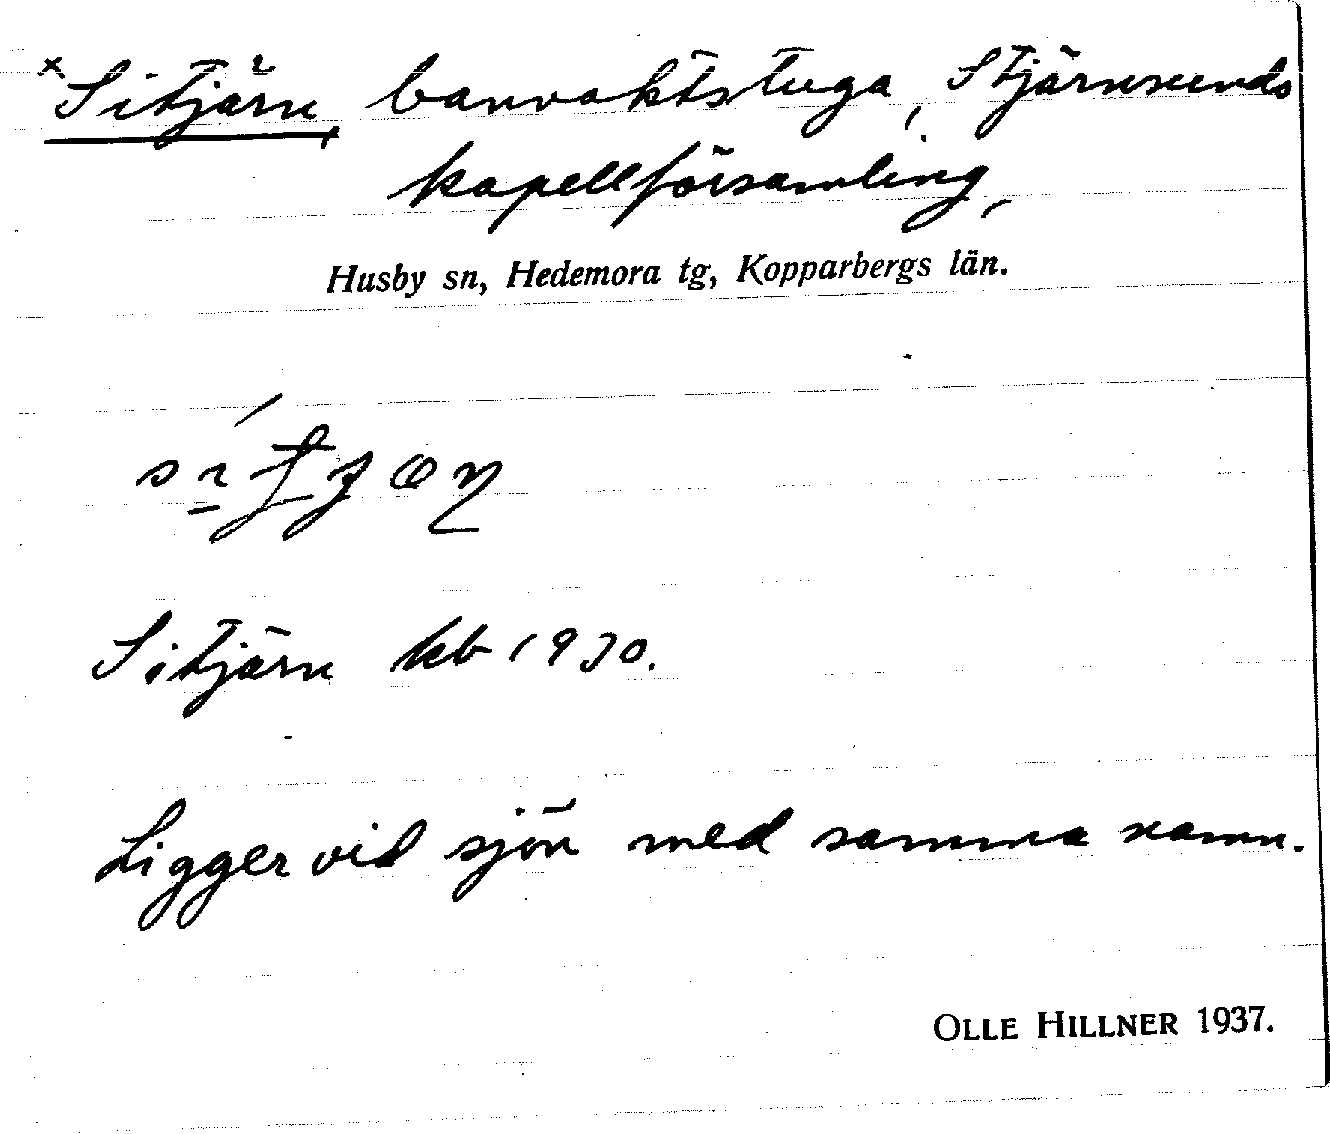 ×Sitjärn, banvaktstuga, Stjärnsunds
kapellförsamling,
Husby sn, Hedemora tg, Kopparbergs län.
Sitjärn kb 1930.
Ligger vid sjön med samma namn.
OLLE HILLNER 1937.